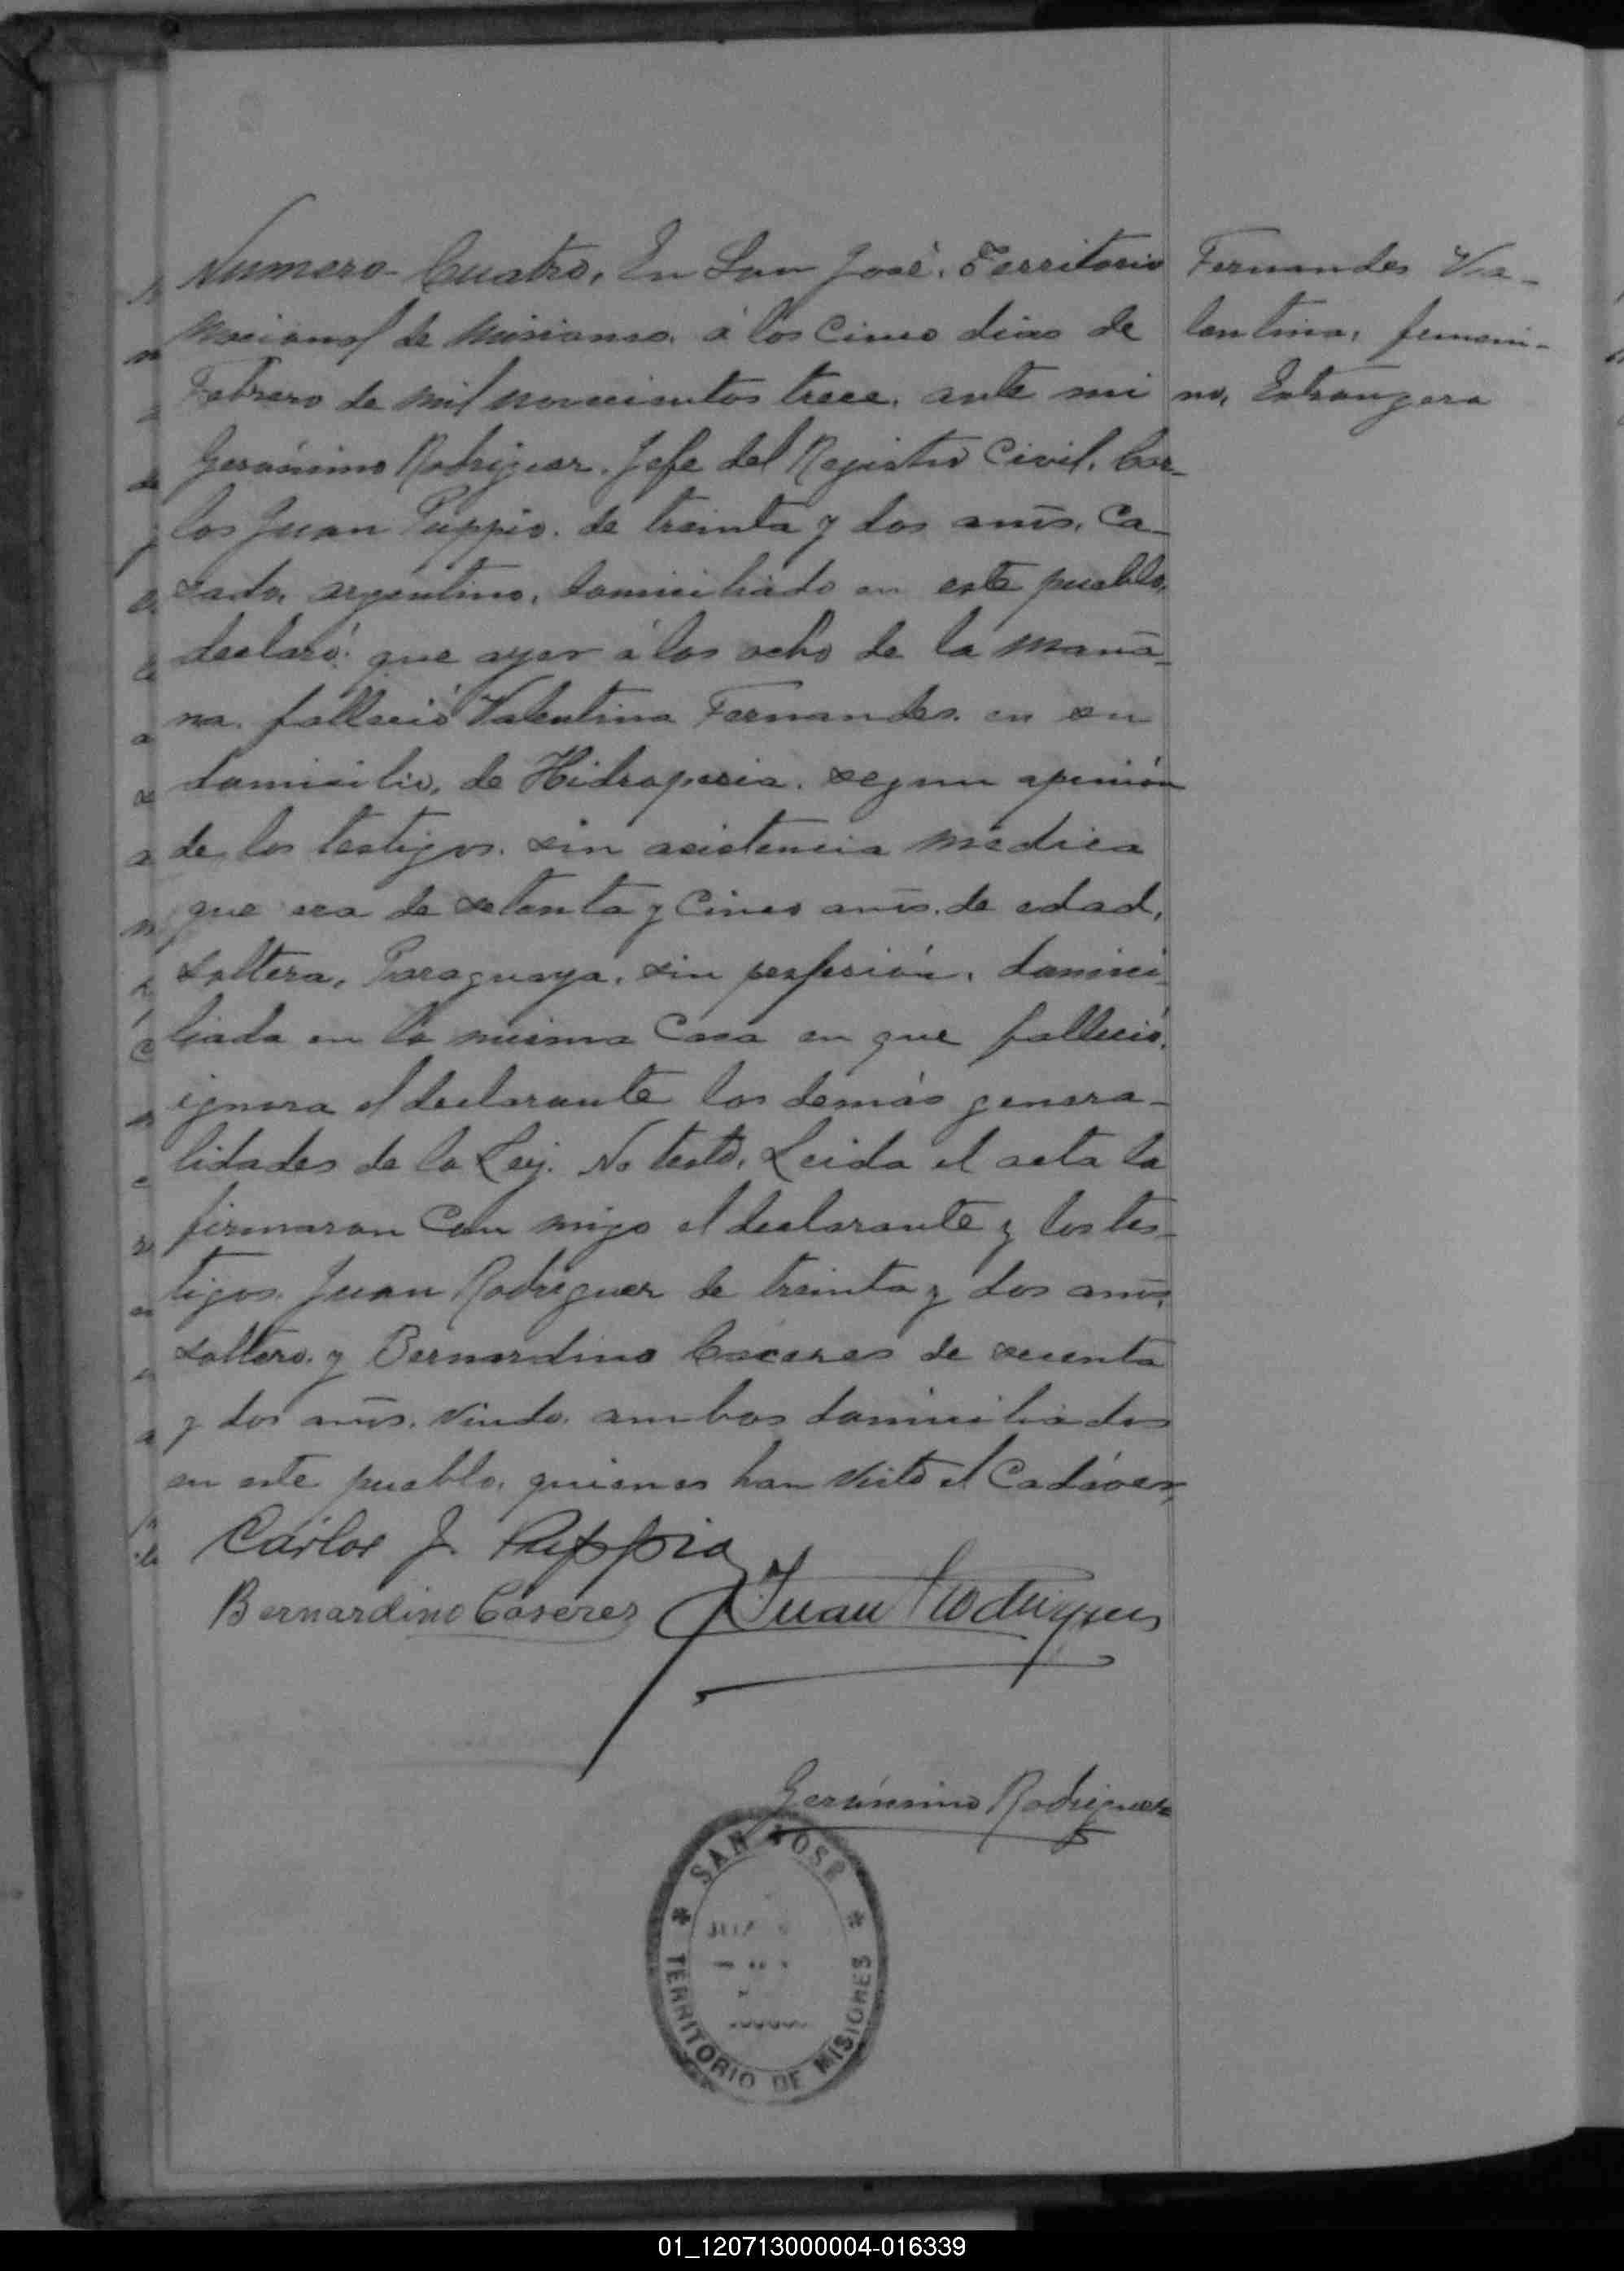 Numero Cuatro, En San José, Territorio
Nacional de Misiones, á los cinco dias de
Febrero de mil novecientos trece, ante mi
Gerónimo Rodriguez, Jefe del Registro Civil, Car-
los Juan Puppio, de treinta y dos años, ca-
sado, argentino, domiciliado en este pueblo,
declaró: que ayer á las ocho de la maña-
na, falleció Valentina Fernandes, en su
domicilio, de Hidropesia, segun opinión
de los testigos, sin asistencia medica
que era de setenta y cinco años, de edad,
soltera, Paraguaya, sin profesión, domici-
liada en la misma casa en que falleció,
ignora el declarante los demás genera-
lidades de la Ley. No testó, Leida el acta la
firmaron con migo el declarante y los tes-
tigos, Juan Rodriguez de treinta y dos años,
soltero, y Bernardino Caceres de
y dos años, viudo, ambos domiciliados
en este pueblo, quienes han visto el Cadáver,
Carlos J. Puppio
Bernardino Caseres Juan Rodriguez
Gerónimo Rodriguez
SAN JOSE
TERRITORIO DE MISIONES
Fernandes Va-
lentina, femeni-
no, Estrangera
01_120713000004-016339